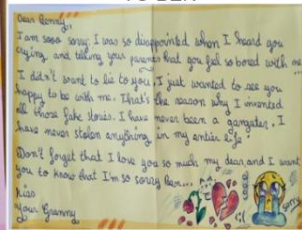 Dear Benny,
I am sooo sorry. I was so disappointed when I heard you
crying and telling your parents that you feel so bored with me.
I didn't want to lie to you, I just wanted to see you
happy to be with me. That's the reason why I invented
all those fake stories. I have never been a gangster. I
have never stolen anything in my entire life.
Don't forget that I love you so much my dear, and I want
you to know that I'm so sorry Ben...
Kiss
your Granny
sorry